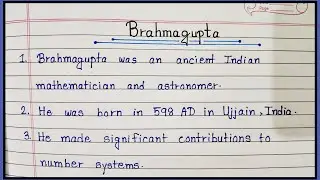 Brahmagupta
1. Brahmagupta was an ancient Indian
mathematician and astronomer.
2. He was born in 598 AD in Ujjain, India.
3. He made significant contributions to
number systems.